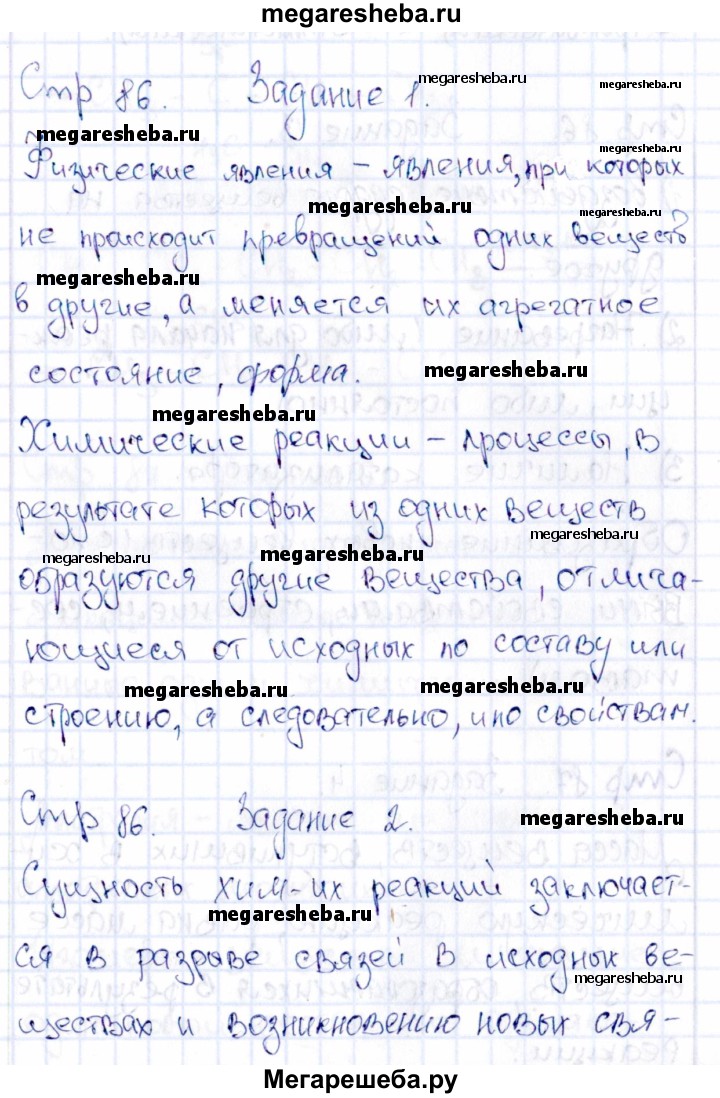 megaresheba.ru
Стр 86. Задание 1.
megaresheba.ru
megaresheba.ru
megaresheba.ru
Физические явления – явления, при которых
megaresheba.ru
megaresheba.ru
не происходит превращений одних веществ
megaresheba.ru
в другие, а меняется их агрегатное
состояние, форма.
megaresheba.ru
megaresheba.ru
Химические реакции – процессы, в
результате которых из одних веществ
megaresheba.ru
megaresheba.ru
megaresheba.ru
образуются другие вещества, отлича-
ющиеся от исходных по составу или
megaresheba.ru
megaresheba.ru
строению, а следовательно, и по свойствам.
Стр 86. Задание 2.
megaresheba.ru
Сущность хим-их реакций заключает-
megaresheba.ru
ся в разрыве связей в исходных ве-
megaresheba.ru
ществах и возникновению новых свя-
Мегарешеба.ру